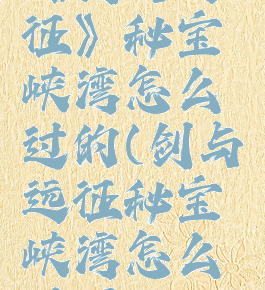 征》秘宝
峡湾怎么
过的(剑与
远征秘宝
峡湾怎么